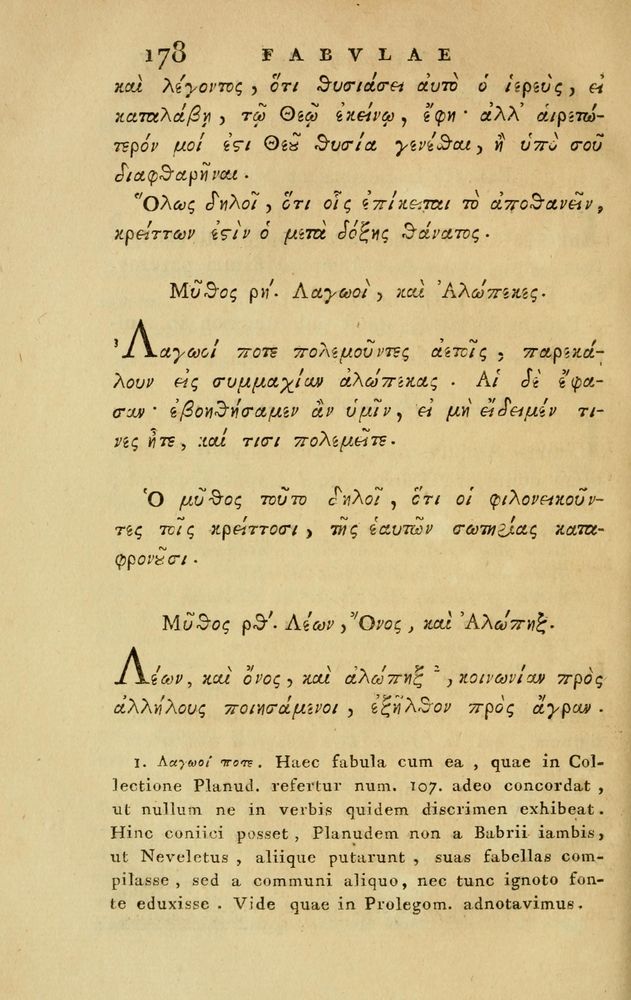 178 FABVLAE
καὶ λέγοντος, ὅτι θυσιάσει ἀυτὸ ὁ ἱερεὺς, εἰ
καταλάβῃ, τῷ Θεῷ ἐκείνῳ, ἔφη· ἀλλ' ἁιρετώ-
τερόν μοί ἐϛι Θεῦ θυσία γενέσθαι, ἢ ὑπὸ σοῦ
διαφθαρῆναι.
Ὅλως δηλοῖ, ὅτι οἷς ἐπίκειται τὸ ἀποθανεῖν,
κρείττων ἐϛὶν ὁ μετὰ δόξης θάνατος.
Μῦθος ρή. Λαγωοὶ, καὶ Ἀλώπεκες.
¹Λαγωοί ποτε πολεμοῦντες ἀετοῖς, παρεκά-
λουν εἰς συμμαχίαν ἀλώπεκας. Αἱ δὲ ἔφα-
σαν· ἐβοηθήσαμεν ἂν ὑμῖν, εἰ μὴ εἴδειμέν τι-
νες ἦτε, καί τισι πολεμεῖτε.
Ὁ μῦθος τοῦτο δηλοῖ, ὅτι οἱ φιλονεικοῦν-
τες τοῖς κρείττοσι, τῆς ἑαυτῶν σωτηρίας κατα-
φρονοῦσι.
Μῦθος ρθ'. Λέων, Ὄνος, καὶ Ἀλώπηξ.
Λέων, καὶ ὄνος, καὶ ἀλώπηξ ², κοινωνίαν πρὸς
ἀλλήλους ποιησάμενοι, ἐξῆλθον πρὸς ἄγραν.
1. Λαγωοί ποτε. Haec fabula cum ea, quae in Col-
lectione Planud. refertur num. 107. adeo concordat,
ut nullum ne in verbis quidem discrimen exhibeat.
Hinc coniici posset, Planudem non a Babrii iambis,
ut Neveletus, aliique putarunt, suas fabellas com-
pilasse, sed a communi aliquo, nec tunc ignoto fon-
te eduxisse. Vide quae in Prolegom. adnotavimus.